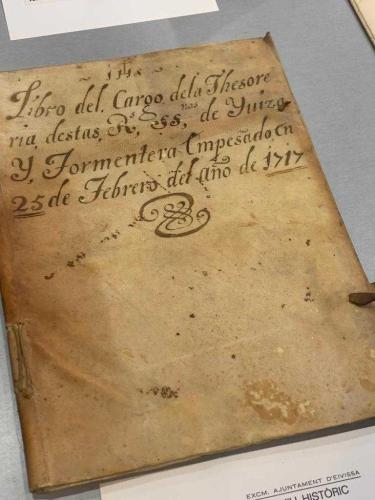 ~ IHS ~
Libro del Cargo dela Thesore
ria destas Rs. SS.nas de Yuiza
Y, Formentera Empesado En
25 de Febrero del año de 1717
EXCM. AJUNTAMENT D'EIVISSA
HISTÒRIC